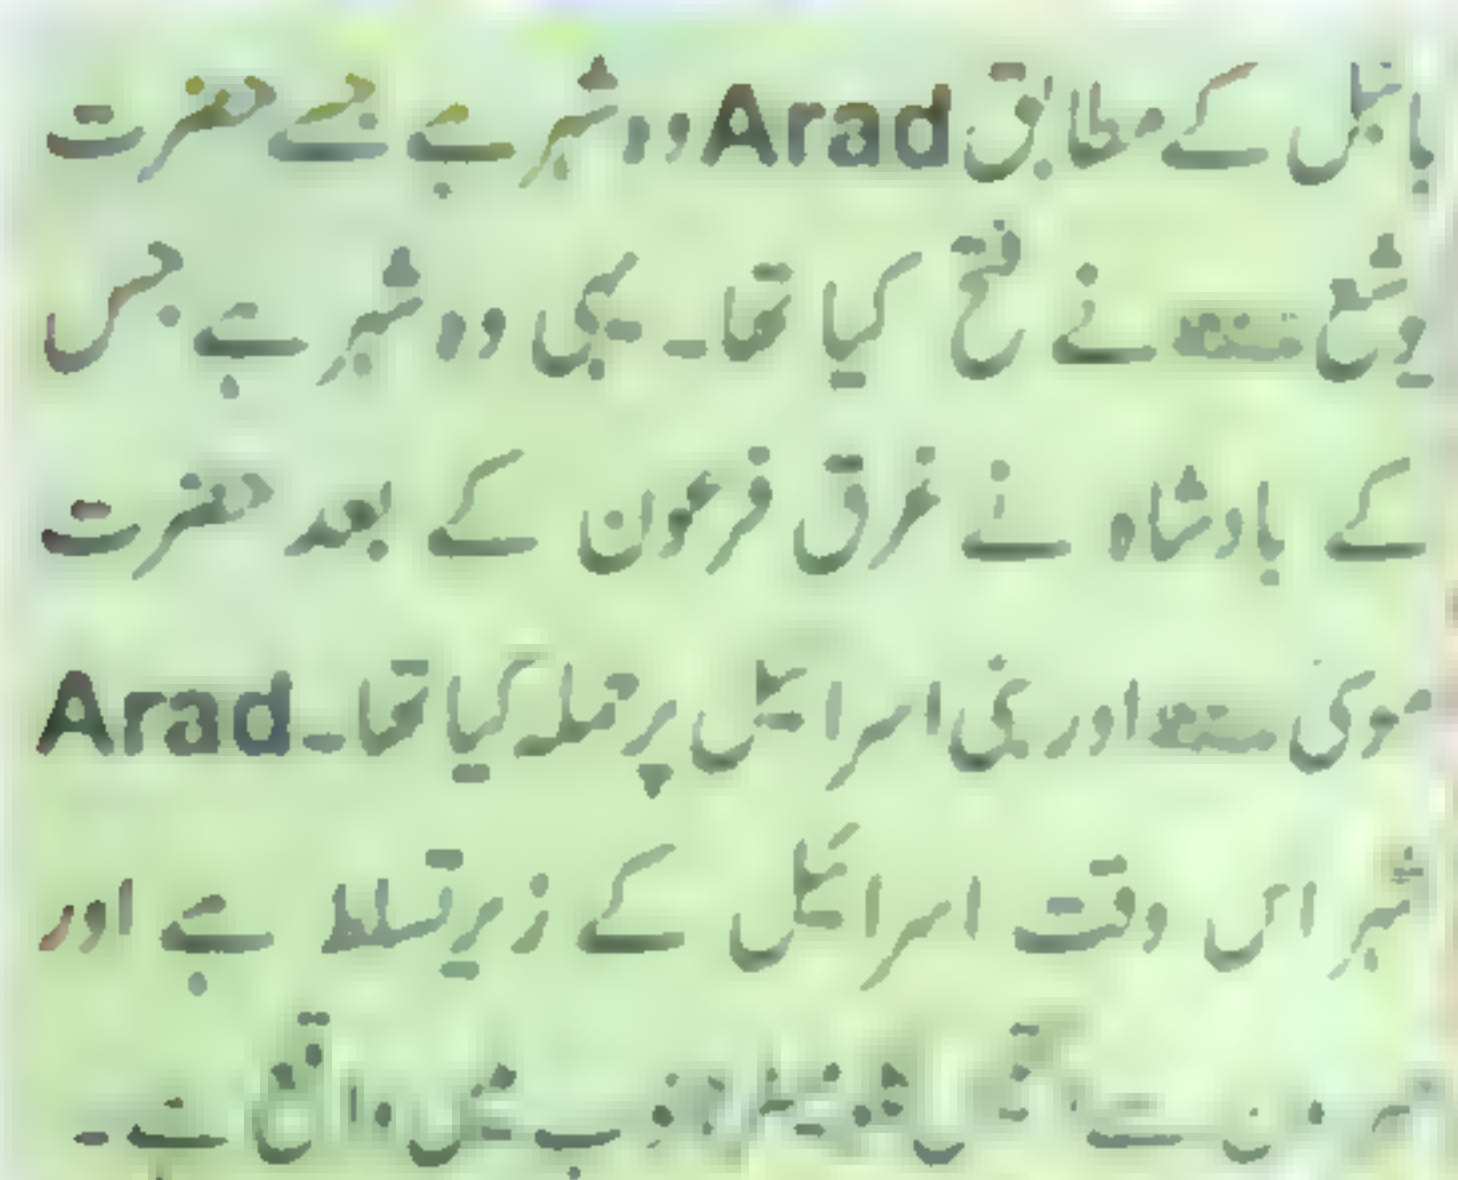 بائبل کے مطابق Arad وہ شہر ہے جسے حضرت
یوشع نے فتح کیا تھا۔ یہی وہ شہر ہے جس
کے بادشاہ نے غرق فرعون کے بعد حضرت
موسیٰ اور بنی اسرائیل پر حملہ کیا تھا۔ Arad
شہر اس وقت اسرائیل کے زیر تسلط ہے اور
سے میں واقع ہے۔